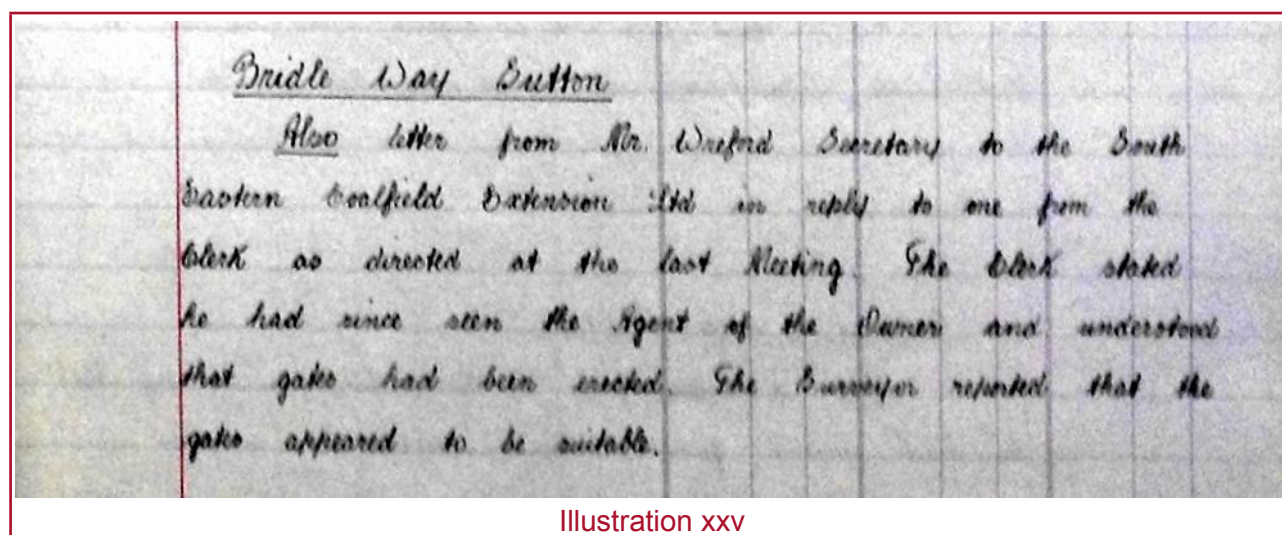 Bridle Way Sutton
Also letter from Mr. Wreford Secretary to the South
Eastern Coalfield Extension Ltd in reply to one from the
Clerk as directed at the last Meeting. The Clerk stated
he had since seen the Agent of the Owner and understood
that gates had been erected. The Surveyor reported that the
gates appeared to be suitable.
Illustration xxv